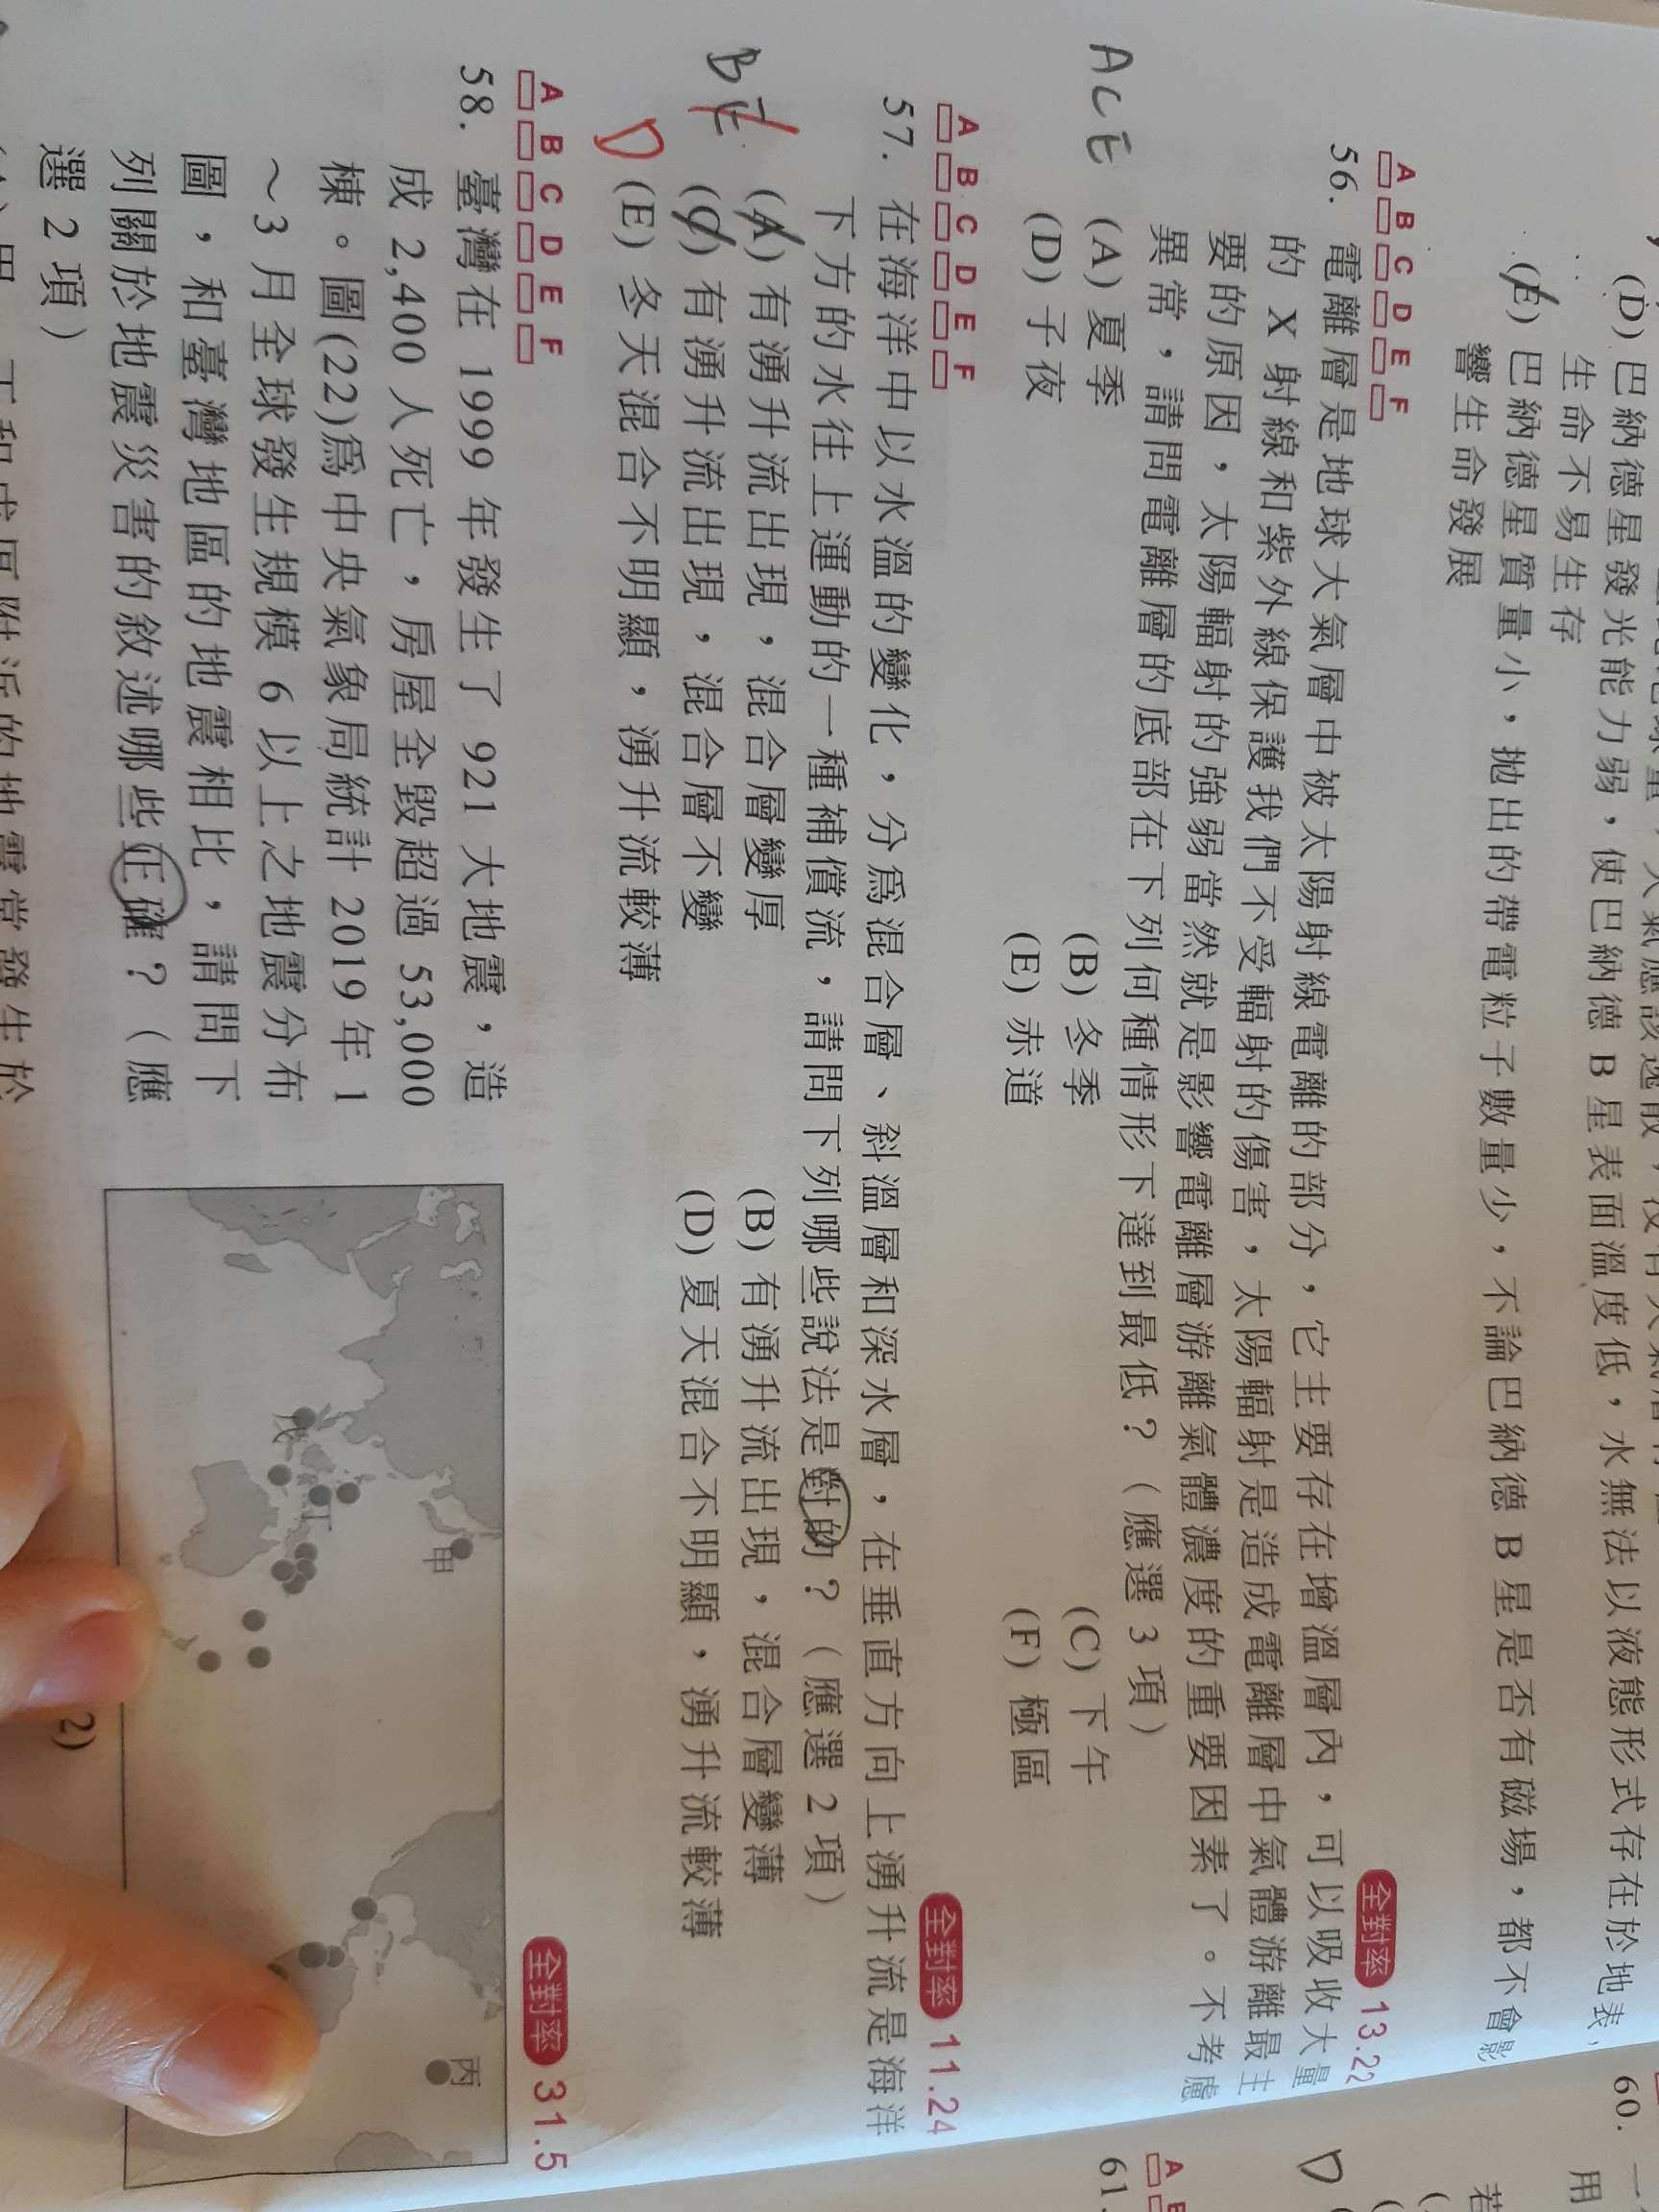 (D) 巴納德星發光能力弱，使巴納德 B 星表面溫度低，水無法以液態形式存在於地表，
生命不易生存
(E) 巴納德星質量小，拋出的帶電粒子數量少，不論巴納德 B 星是否有磁場，都不會影
響生命發展
A B C D E F
全對率 13.22
56. 電離層是地球大氣層中被太陽射線電離的部分，它主要存在增溫層內，可以吸收大量
的 X 射線和紫外線保護我們不受輻射的傷害，太陽輻射是造成電離層中氣體游離最主
要的原因，太陽輻射的強弱當然就是影響電離層游離氣體濃度的重要因素了。不考慮
異常，請問電離層的底部在下列何種情形下達到最低？（應選 3 項）
ACE
(A) 夏季 (B) 冬季 (C) 下午
(D) 子夜 (E) 赤道 (F) 極區
A B C D E F
全對率 11.24
57. 在海洋中以水溫的變化，分為混合層、斜溫層和深水層，在垂直方向上湧升流是海洋
下方的水往上運動的一種補償流，請問下列哪些說法是對的？（應選 2 項）
BE
D
(A) 有湧升流出現，混合層變厚 (B) 有湧升流出現，混合層變薄
(C) 有湧升流出現，混合層不變 (D) 夏天混合不明顯，湧升流較薄
(E) 冬天混合不明顯，湧升流較薄
A B C D E F
全對率 31.5
58. 臺灣在 1999 年發生了 921 大地震，造
成 2,400 人死亡，房屋全毀超過 53,000
棟。圖(22)為中央氣象局統計 2019 年 1
～3 月全球發生規模 6 以上之地震分布
圖，和臺灣地區的地震相比，請問下
列關於地震災害的敘述哪些正確？（應
選 2 項）
甲
丙
丁
戊
2)
60.
用
D
若
61.